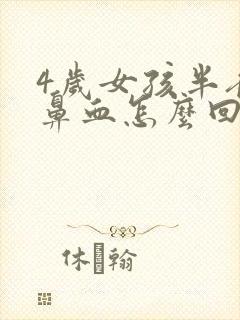 4歲女孩半
鼻血怎麼回
休 翰